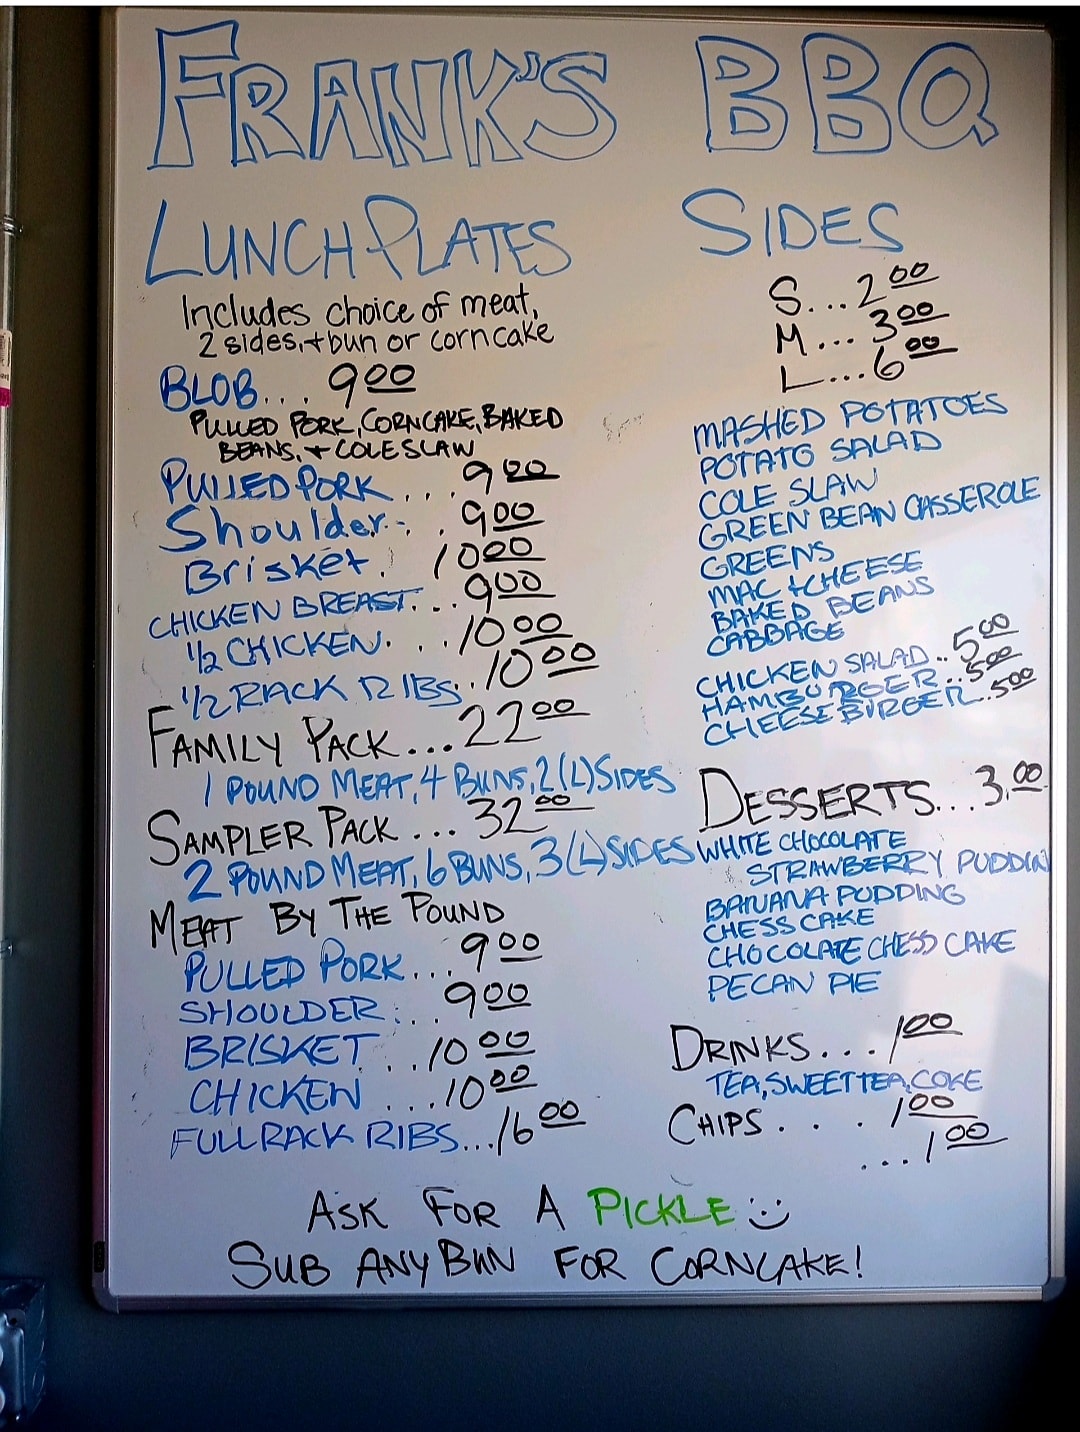 FRANK'S BBQ
LUNCH PLATES
Includes choice of meat,
2 sides, + bun or corncake
BLOB... 9.00
PULLED PORK, CORNCAKE, BAKED
BEANS, + COLE SLAW
PULLED PORK... 9.00
Shoulder... 9.00
Brisket. 10.00
CHICKEN BREAST... 9.00
1/2 CHICKEN... 10.00
1/2 RACK RIBS.. 10.00
FAMILY PACK... 22.00
1 POUND MEAT, 4 BUNS, 2 (L) SIDES
SAMPLER PACK... 32.00
2 POUND MEAT, 6 BUNS, 3 (L) SIDES
MEAT BY THE POUND
PULLED PORK... 9.00
SHOULDER... 9.00
BRISKET... 10.00
CHICKEN... 10.00
FULL RACK RIBS... 16.00
SIDES
S... 2.00
M... 3.00
L... 6.00
MASHED POTATOES
POTATO SALAD
COLE SLAW
GREEN BEAN CASSEROLE
GREENS
MAC + CHEESE
BAKED BEANS
CABBAGE
CHICKEN SALAD.. 5.00
HAMBURGER.. 5.00
CHEESE BURGER.. 5.00
DESSERTS... 3.00
WHITE CHOCOLATE
STRAWBERRY PUDDIN
BANANA PUDDING
CHESS CAKE
CHOCOLATE CHESS CAKE
PECAN PIE
DRINKS... 1.00
TEA, SWEET TEA, COKE
CHIPS.... 1.00
... 1.00
ASK FOR A PICKLE :)
SUB ANY BUN FOR CORNCAKE!